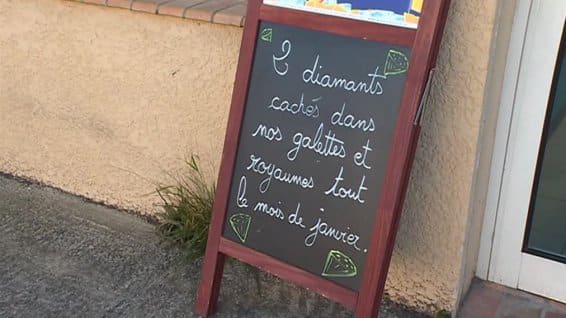 2 diamants
cachés dans
nos galettes et
royaumes tout
le mois de janvier.